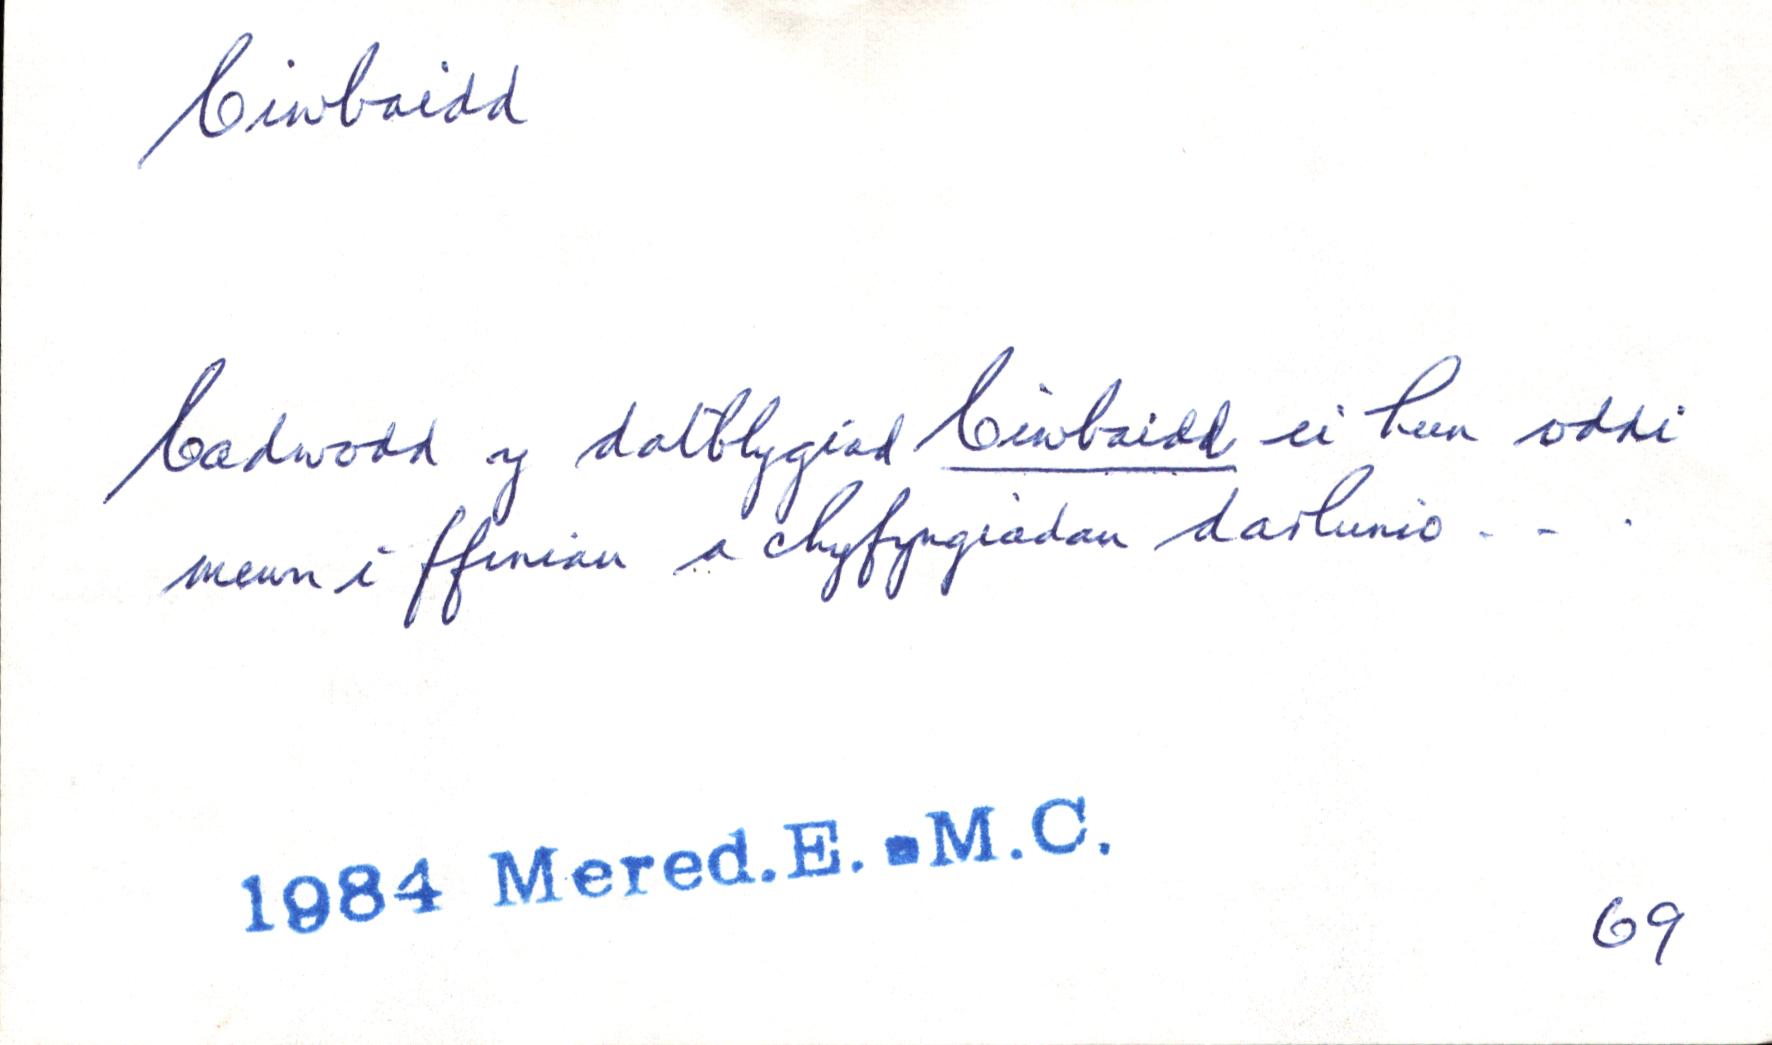 Ciwbaidd
Cadwodd y datblygiad Ciwbaidd ei hun oddi
mewn i ffiniau a chyfyngiadau darlunio - - .
1984 Mered.E. M.C.
69